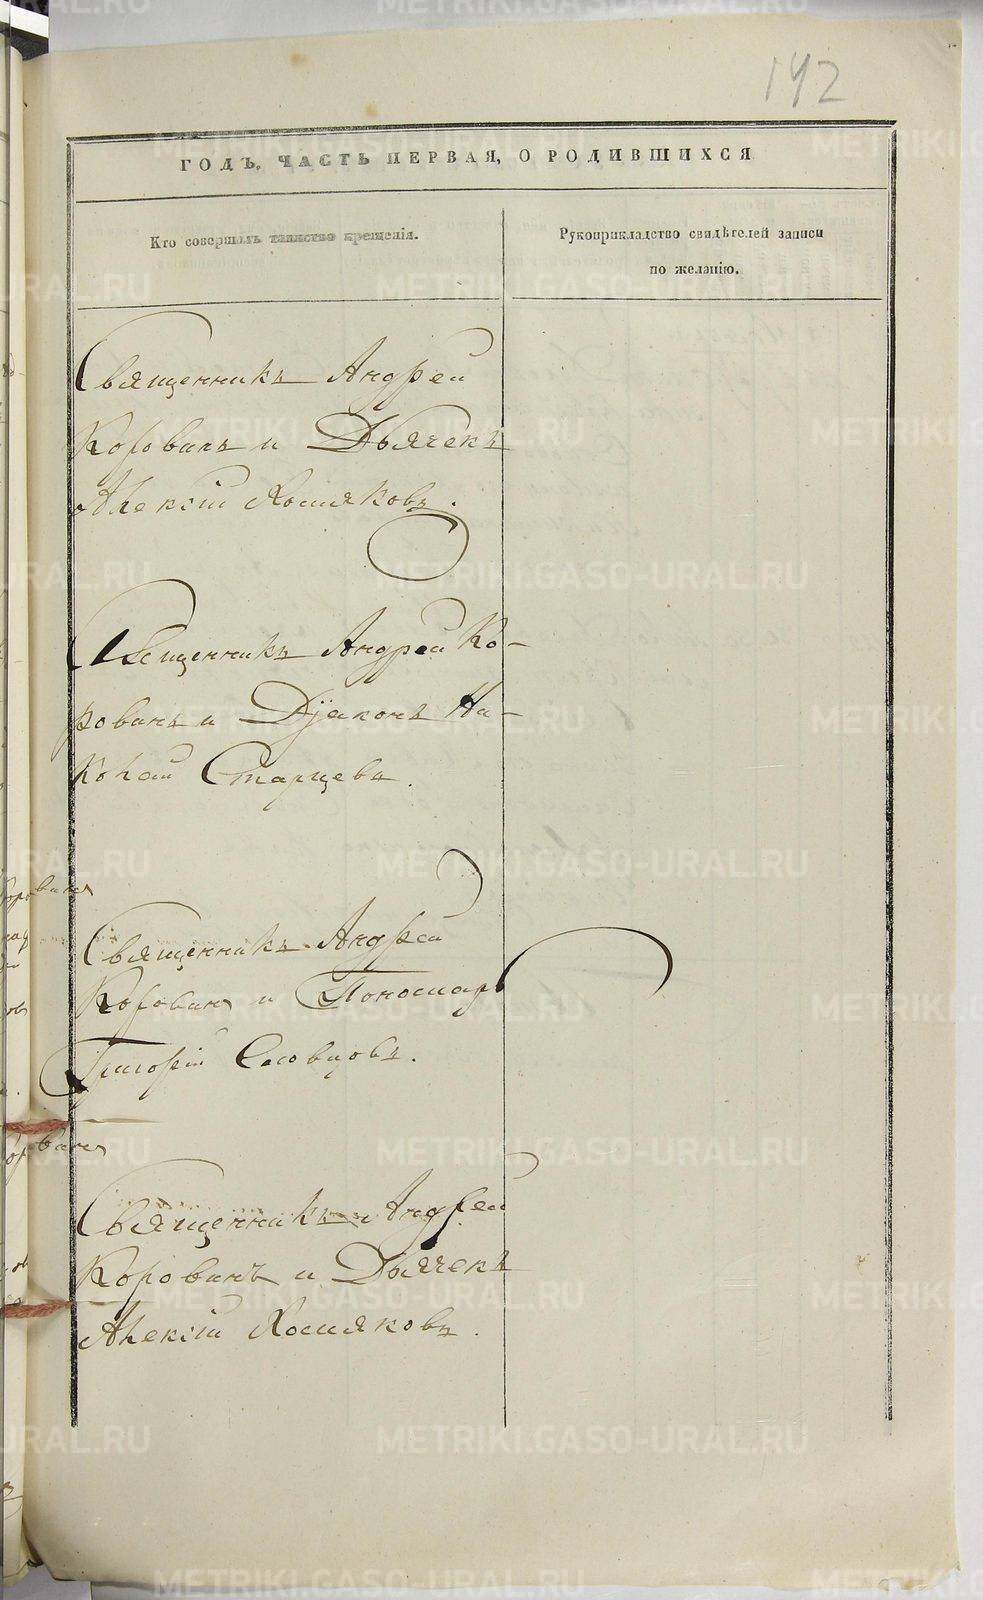 192
ГОДЪ, ЧАСТЬ ПЕРВАЯ, О РОДИВШИХСЯ
Кто совершалъ таинство крещенія.
Рукоприкладство свидѣтелей записи
по желанію.
Священникъ Андрей
Корованъ и Дьячекъ
Алексій Хомяковъ.
Священникъ Андрей Ко-
рованъ и Діаконъ Ни-
колай Старцевъ.
Священникъ Андрей
Корованъ и Пономарь
Григорій Словцовъ.
Священникъ Андрей
Корованъ и Дьячекъ
Алексій Хомяковъ.
METRIKI.GASO-URAL.RU